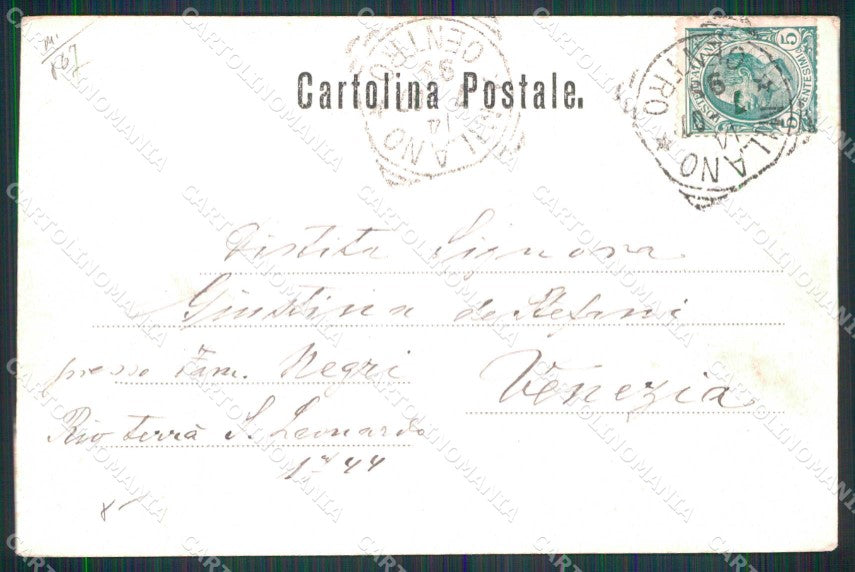 Cartolina Postale.
MILANO CENTRO
MILANO CENTRO
5
CENTESIMI
Distita Signora
Giustina de Stefani
presso Fam. Negri
Venezia
Rio terrà S. Leonardo
CARTOLINOMANIA